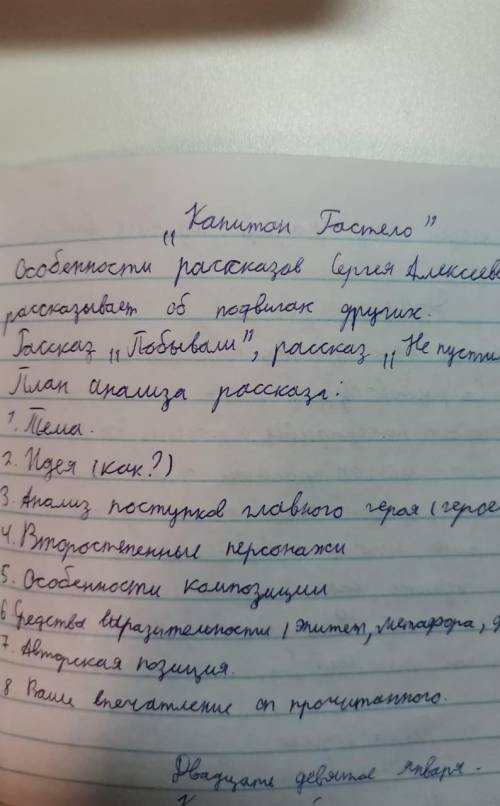 „Капитан Гастело”
Особенности рассказов Сергея Алексеев
рассказывает об подвигах других.
Рассказ „Побывали”, рассказ „Не пусти
План анализа рассказа:
1. Тема.
2. Идея (как?)
3. Анализ поступков главного героя (герое
4. Второстепенные персонажи
5. Особенности композиции
6 Средства выразительности (эпитет, метафора,
7. Авторская позиция.
8. Ваше впечатление от прочитанного.
Двадцать девятое января.